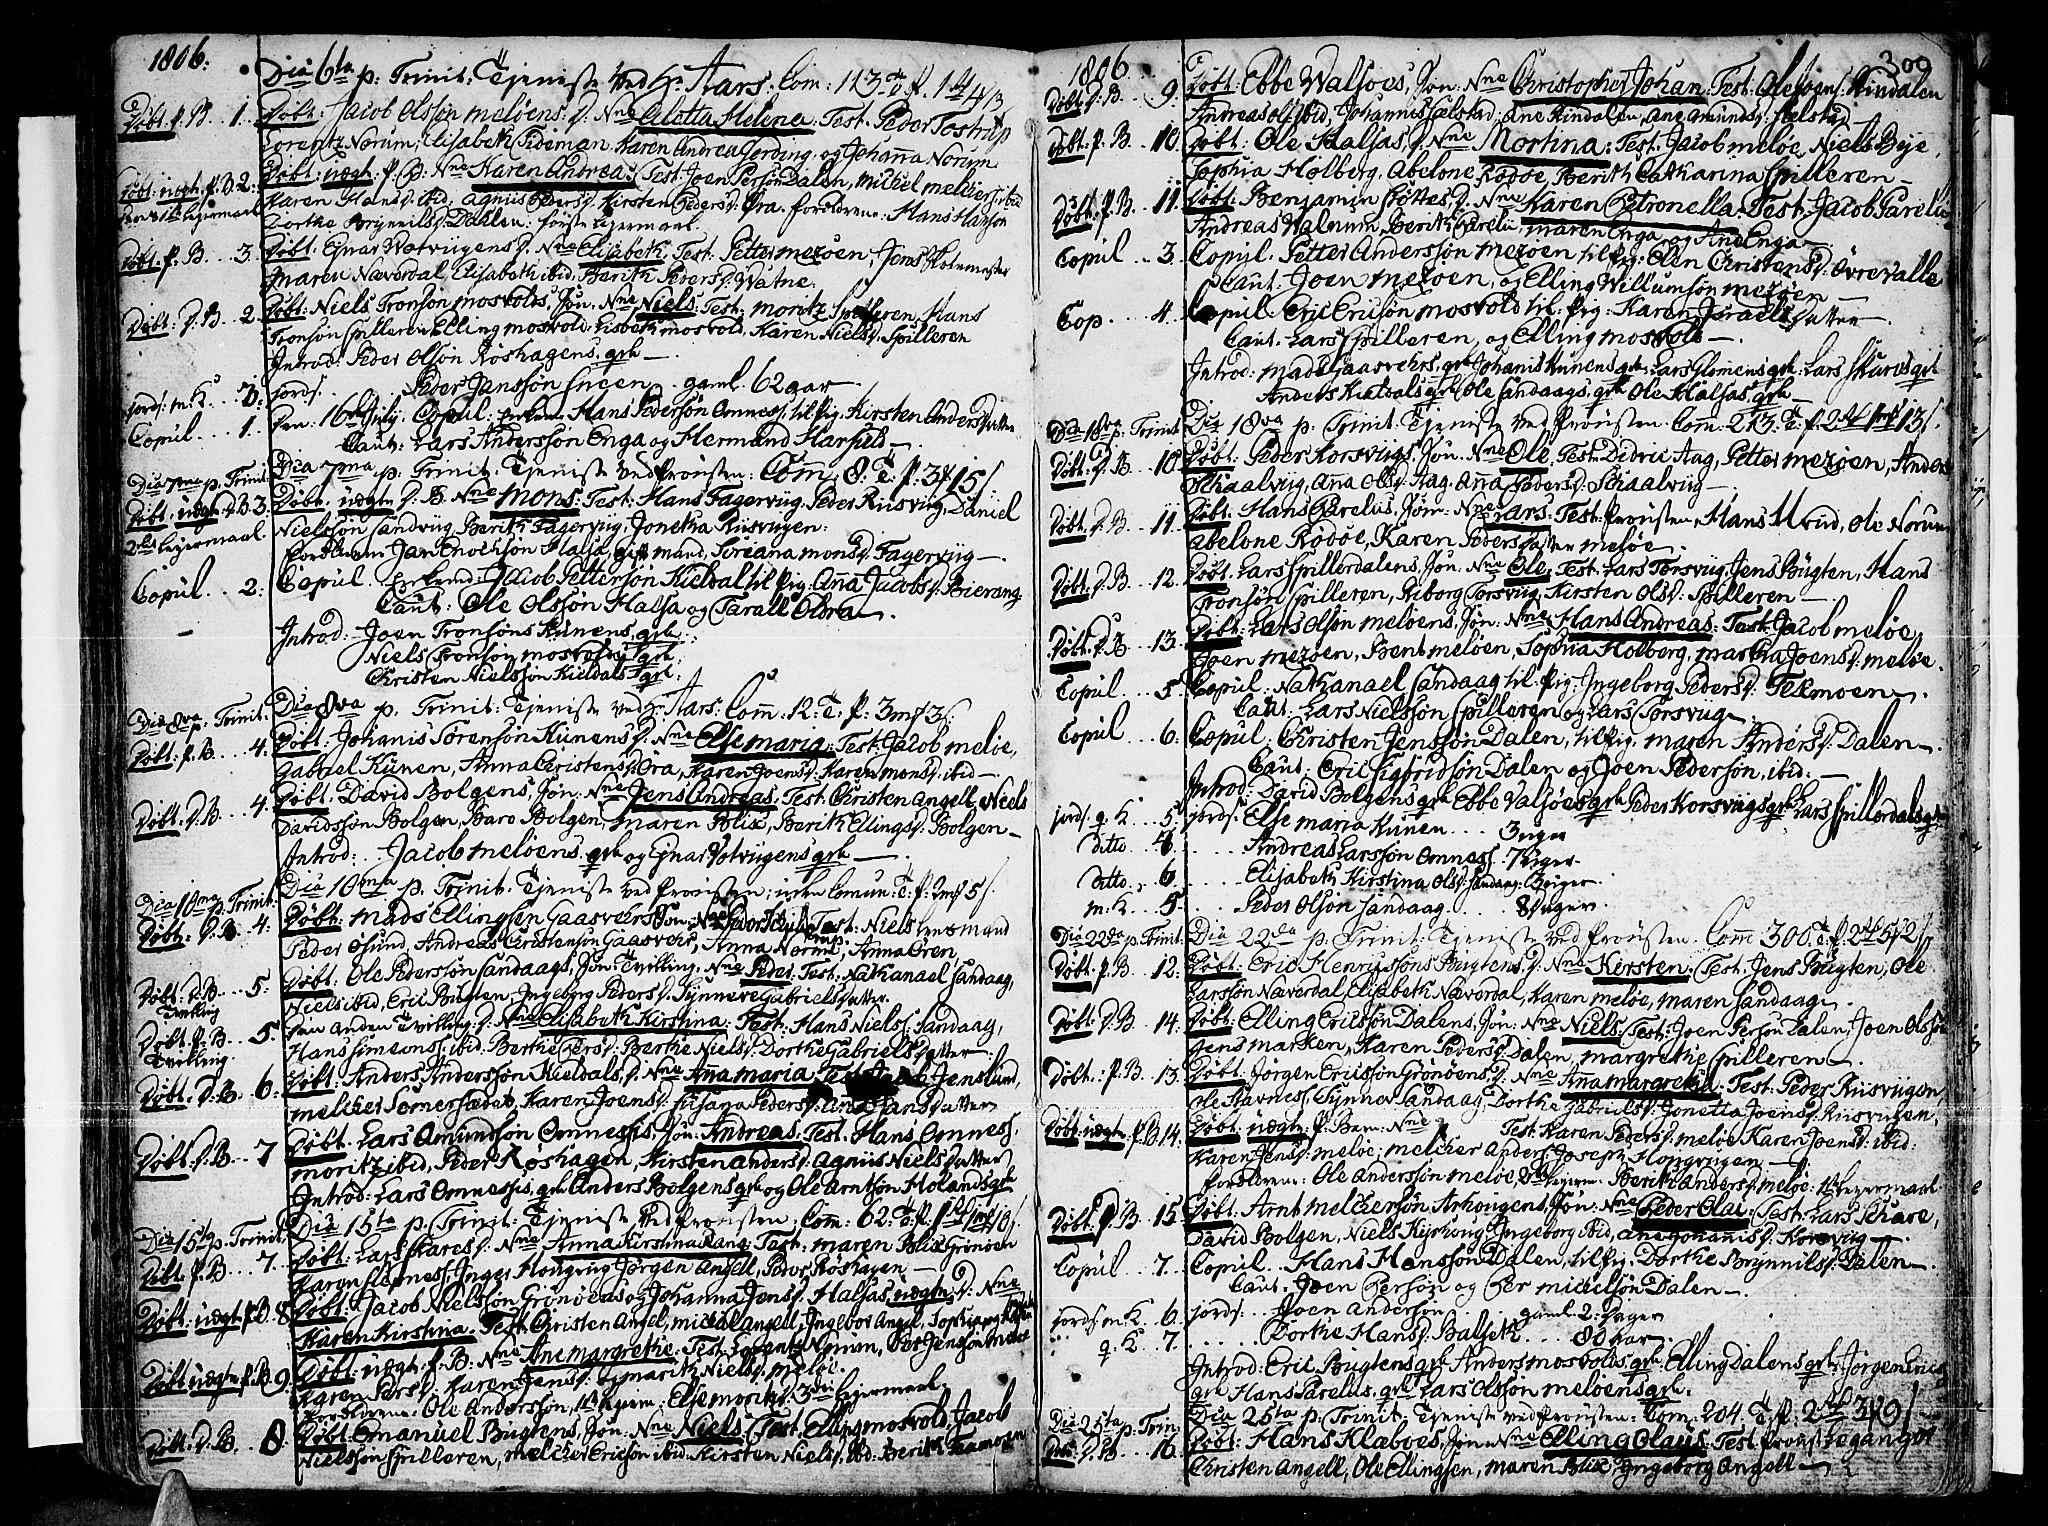 1806:
Dia 6ta p. Trinit: Tjeniste ved Hr Aars. Com: 113
Døbt. P. B. 1. Døbt: Jacob Olssøn meløens D: Nne Oletta Helena: Test: Peder Tostrup
Lorentz Norum, Elisabeth Tideman, Karen Andrea Jording, og Johanna Norum
Døbt: uægt: P. B. 2. Døbt: uægt: P. B: Nne Karen Andrea: Test: Joen Persøn Dalen, Michel melchers: ibid
Karen Hansd: ibid, Agnis Pedersd: Kirsten Pedersd: Ora. Forældrene: Hans Hansøn
Dorthe Brynnilsd: Dahlen: første Lejermaal.
Døbt: P. B. 3. Døbt: Ejnar Wotvigens D: Nne Elisabeth. Test: Petter mesøen, Jens
maren Næverdal, Elisabeth ibid, Berith Pedersd: Watne.
Døbt: D. B. 2. Døbt: Niels Tronsøn mosvolds, Søn: Nne Niels: Test: moritz Spilleren, Hans
Tronsøn Spilleren, Elling mosvold, Lisbeth mosvold, Karen Nielsd: Spilleren
Introd: Peder Olsøn Røshagens. qrh
jords: m. K. 7: jords: Peder Janssøn Eneen gaml. 62 aar
Copul . . . 1. Den: 16de July. Copul: Enkem: Hans Pedersøn Omness, til Pig: Kirsten Andersdatter
Caut: Lars Anderssøn Enga og Hermand
Dia 7ma p. Trinit: Dia 7ma p. Trinit: Tjeniste ved Provsten: Com: 8:
Døbt: uægt: D. B. 3. Døbt: uægt: D. B: Nne mons: Test: Hans Fagervig, Peder Risvig, Daniel
2det Lejermaal. Nielssøn Sandvig, Berith Fagervig, Jonetha Risvigen:
Forældrene: Jan Enochsøn Halsa, gift mand, Soriana monsd: Fagervig
Copul . . 2: Copul. Enkem: Jacob Pettersøn Kieldal til Pig: Anna Jacobsd: Bierang
Caut: Ole Olssøn Halsa og Taralt Olsøn.
Introd: Joen Tronsøns Kunens qrh:
Niels Tronsøn mosvolds qrh:
Christen Nielssøn Kieldals qrh:
Dia 8va p. Trinit. Dia 8va p. Trinit: Tjeniste ved Hr Aars: Com: 12:
Døbt: P. B. . . 4. Døbt: Johanis Sørensøn Kunens D: Nne Else maria: Test: Jacob meløe,
Gabriel Kunen, Anna Christensd: Ora, Karen Joensd: Karen monsd: ibid
Døbt: D. B. . . 4. Døbt: David Bolgens, Søn: Nne Jens Andreas: Test: Christen Angell, Niels
Davidssøn Bolgen, Baro Bolgen, maren Blix, Berith Ellingsd: Bolgen
Introd: Jacob meløens qrh og Ejnar Votvigens qrh
Dia 10ma p. Trinit. Dia 10ma p. Trinit: Tjeniste ved Provsten; uden Comun:
Døbt: D. B. 4. Døbt: mads Ellingsen Gaasværs Søn: Nne Test: Niels Lensmand
Peder Øsund, Andreas Christensøn Gaasvær, Anna Norum, Anna Oren,
Døbt: D. B. . . 5. Døbt: Ole Pederssøn Sandaags, Søn: Tvilling: Nne Peder. Test: Nathanael Sandaag,
Tvilling Niels ibid, Eric Bugten, Ingeborg Pedersd: Synneve Gabrielsdatter.
Døbt: P. B. . . 5. Den anden Tvilling: D: Nne Elisabeth Kirstina: Test: Hans Nielss: Sandaag,
Tvilling. Hans simeonss: ibid, Berthe Persd: Berthe Nielsd: Dorthe Gabrielsdatter.
Døbt: D. B. 6. Døbt: Anders Anderssøn Kieldals, D: Nne Ana maria,
melcher Somersædet, Karen Joensd: Susana Pedersd:
Døbt: D. B. . . 7 Døbt: Lars Amundssøn Omnessis, Søn: Andreas. Test: Hans Omness,
moritz ibid, Peder Røshagen, Kirsten Andersd: Agnis Nielsdatter
Introd: Lars Omnessis. qrh Anders Bolgens qrh og Ole Arntsøn Holands qrh
Dia 15ta p. Trinit. Dia 15ta p. Trinit: Tjeniste ved Provsten; Com: 62:
Døbt: P. B. . . 7. Døbt: Lars Skares D: Nne Anna Kirstina Rang: Test: maren Blix Grønøen
Karen Selness, Inger Hougvig, Jørgen Angell, Peder Røshagen
Døbt: uægt P. B. 8. Døbt: Jacob Nielssøn Grønøens og Johanna Jensd: Halsas uægte D: Nne
Karen Kirstina. Test: Christen Angel, michal angell, Ingebor Angel,
Døbt uægt: P. B. 9. Døbt: uægt: P: B: Nne Ane margrethe: Test: Lorentz Norum,
Karen Persd: Karen Jensd: og marith Nielsd: meløe.
Forældrene: Ole Anderssøn, 1te Lejerm: Else moritzd: 3die Lejermaal.
Døbt: D. B. . . 8. Døbt: Emanuel Bugtens, Søn: Nne Niels: Test: Elling mosvold, Jacob
Nielssøn Spilleren, melcher Ericsøn ibid, Kirsten Nielsd: ibid: Berith Texmoen
1806
300
Døbt: D. B. 9. Døbt: Ebbe Walsøes, Søn: Nne Christopher Johan. Test: Ole Joens: Kindalen
Andreas Ols: ibid, Johannes Selstad, Ane Kindalen, Ane Amunds: Selstad
Døbt: P. B. 10. Døbt: Ole Halsas, D: Nne Mortina: Test: Jacob meløe, Niels Beje,
Sophia Holberg, Abelone Rødøe, Berith Catharina Spilleren
Døbt: P. B. 11. Døbt: Benjamin D: Nne Karen Petronella: Test: Jacob Parelius
Andreas Walnum, Berith Pareli, maren Enga og Ane Enga
Copul . . 3. Copul: Petter Anderssøn mesøen til Pig: Olen Christensd: Øvrevalle
Caut: Joen mesøen, og Elling Willumsøn mesøen
Cop. . . . 4. Copul: Eric Ericsøn mosvold til Pig: Karen Israelsdatter
Caut: Lars Spilleren, og Elling mosvold
Introd: mads Gaasværs, qrh Johanis Kunens qrh: Lars Glomens qrh: Lars Skares qrh
Anders Kieldals qrh Ole Sandaags, qrh Ole Halsas, qrh
Dia 18va p: Trinit. Dia 18va p. Trinit: Tjeniste ved Provsten: Comm: 213:
Døbt: D. B. 10. Døbt: Peder Korsvigs, Søn: Nne Ole, Test: Didric Aag, Petter mesøen, Anders
Skaalvug, Ana Olsd: Aag, Anna Pedersd: Skaalvug
Døbt: D. B. . . 11. Døbt: Hans Parelus, Søn: Nne Lars: Test: Provsten, Hans Hvid, Ole Norum
Abelone Rødøe, Karen Pedersdatter meløe.
Døbt: D. B. 12. Døbt: Lars Spillerdalens, Søn: Nne Ole: Test: Lars Torsvig, Jens Bugten, Hans
Tronsøn Spilleren, Riborg Torsvig, Kirsten Olsd: Spilleren
Døbt: D. B. 13. Døbt: Lars Olsøn meløens, Søn: Nne Hans Andreas: Test: Jacob meløe,
Joen mesøen, Bent meløen, Sophia Holberg, martha Joensd: meløe.
Copul . . 5 Copul: Nathanael Sandaag til Pig: Ingeborg Pedersd: Texmoen
Caut: Lars Nielssøn Spilleren og Lars Torsvig
Copul . . 6. Copul: Christen Jenssøn Dalen, til Pig: maren Andersd: Dalen
Caut. Eric Sigfridsøn Dalen og Joen Pedersøn, ibid:
Introd: David Bolgens qrh Ebbe Valsøes qrh Peder Korsvigs qrh Lars Spillerdals qrh
jords: q. K. . . 5. jords: Else maria Kunen . . . 3 uger
ditto . . . 4 . . . . Andreas Larssøn Omness. 7 uger
ditto . . 6 . . . . Elisabeth Kirstina Olsd: Sandaag: 8 uger.
m. K. . . 5 . . . . Peder Olsøn Sandaag . . . . 8 uger.
Dia 22da p. Trinit. Dia 22da p. Trinit: Tjeniste ved Provsten. Comm 300.
Døbt: P. B. . . 12. Døbt: Eric Henricssøns Bugtens D: Nne Kirsten: Test: Jens Bugten, Ole
Larssøn Næverdal, Elisabeth Næverdal, Karen meløe, maren Sandaag.
Døbt: D. B. . 14. Døbt: Elling Ericssøn Dalens, Søn: Nne Niels: Test: Joen Persøn Dalen, Joen Olsøn
Jensmarken, Karen Pedersd: Dalen, margrethe Spilleren
Døbt: P. B. . 13. Døbt: Jørgen Ericssøn Grønøens D: Nne Anna margretha: Test: Peder Risvigen,
Ole Stavness, Synnev Sandaag, Dorthe Gabrielsd: Jonetta Joensd: Risvigen,
Døbt: uægt: P. B. 14. Døbt: uægt: P. Barn: Nne Test: Karen Pedersd: meløe, Karen Joensd: ibid:
Karen Jensd: meløe, melcher Anders: Joseph Hougvigen
Forældrene: Ole Anderssøn meløe, 2det Lejerm: Berith Andersd: meløe: 1te Lejermaal.
Døbt: D. B. 15. Døbt: Arnt melchersøn Arhougens, Søn: Nne Peder Olai: Test: Lars Schare,
David Bolgen, Niels Kjrhoug, Ingeborg ibid, Ane Johannisd: Korsvig
Copul . . 7. Copul: Hans Hanssøn Dalen, til Pig: Dorthe Brynnilsd: Dalen
Caut: Joen Persøn og Per michelsøn Dalen
jords: m. K. . . 6. jords: . . Joen Andersøn . . . gaml: 2: Dager
q. K. . . 7. . . . Dorthe Hansd: . . . 80 Aar.
Introd: Eric Bugtens qrh Anders mosvolds qrh, Elling Dalens qrh: Jørgen Erics
qrh Hans Parelus. qrh Lars Olssøn meløens qrh.
Dia 25ta p. Trin. Dia 25ta p. Trinit: Tjeniste ved Provsten: Com: 204.
Døbt: D. B. 16. Døbt: Hans Klæboes, Søn: Nne Elling Olaus: Test: Provst
Christen Angell, Ole Ellingsen, maren Blix, Ingeborg Angell